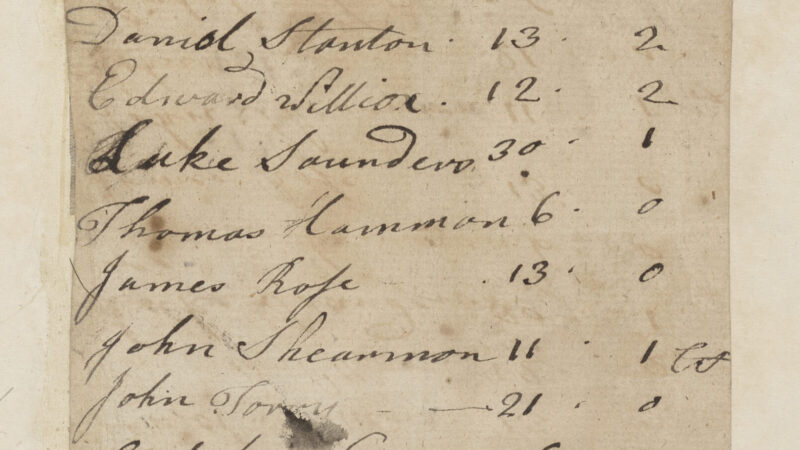 Daniel Stanton 13 2
Edward Willion 12 2
Luke Saunders 30 1
Thomas Hammon 6 0
James Rose 13 0
John Shearmon 11 1
John Torry 21 0